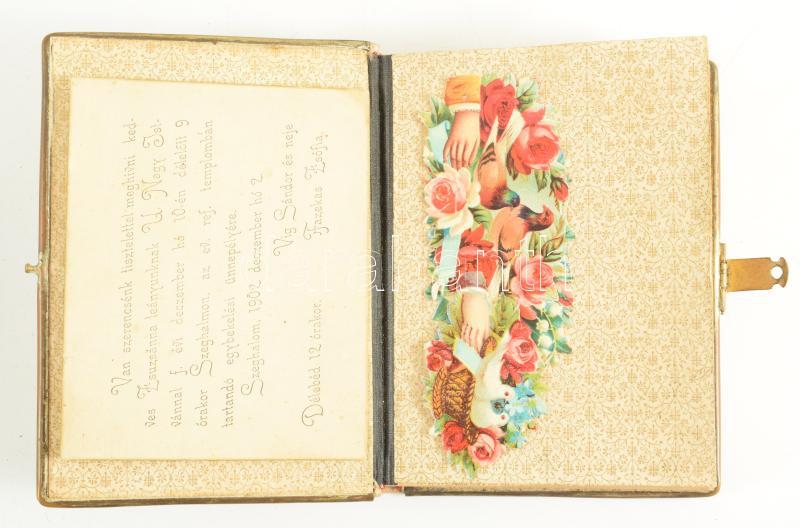 Van szerencsénk tisztelettel meghivni ked-
ves Zsuzsánna leányunknak U. Nagy Ist-
vánnal f. évi deczember hó 10-én délelőtt 9
órakor Szeghalmon, az ev. ref. templomban
tartandó egybekelési ünnepélyére.
Szeghalom, 1902 deczember hó 2.
Vig Sándor és neje
Fazekas Zsófia.
Délebéd 12 órakor.
darabanth